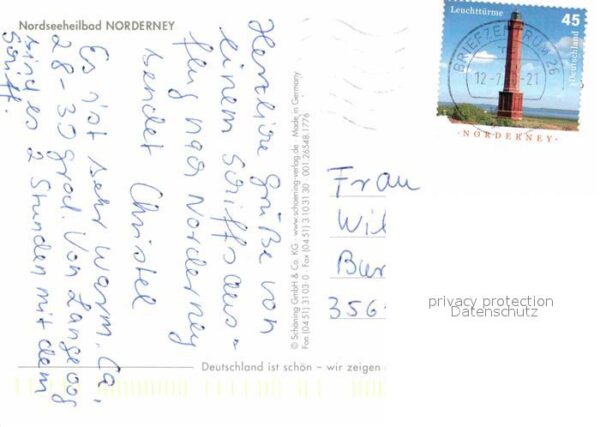 Nordseeheilbad NORDERNEY
Herzliche Grüße von
einem Schiffsaus-
flug nach Norderney
sendet Christel
Es ist sehr warm. Ca.
28-30 Grad. Von Langeoog
sind es 2 Stunden mit dem
Schiff.
© Schöning GmbH & Co. KG · www.schoening-verlag.de Made in Germany
Fon (0451) 31 03-0 · Fax (0451) 3 10 31 30 001.26548.1776
Deutschland ist schön – wir zeigen
Leuchttürme
45
Deutschland
NORDERNEY
BRIEFZENTRUM 26
-21
Frau
Wil
Bur
356
privacy protection
Datenschutz